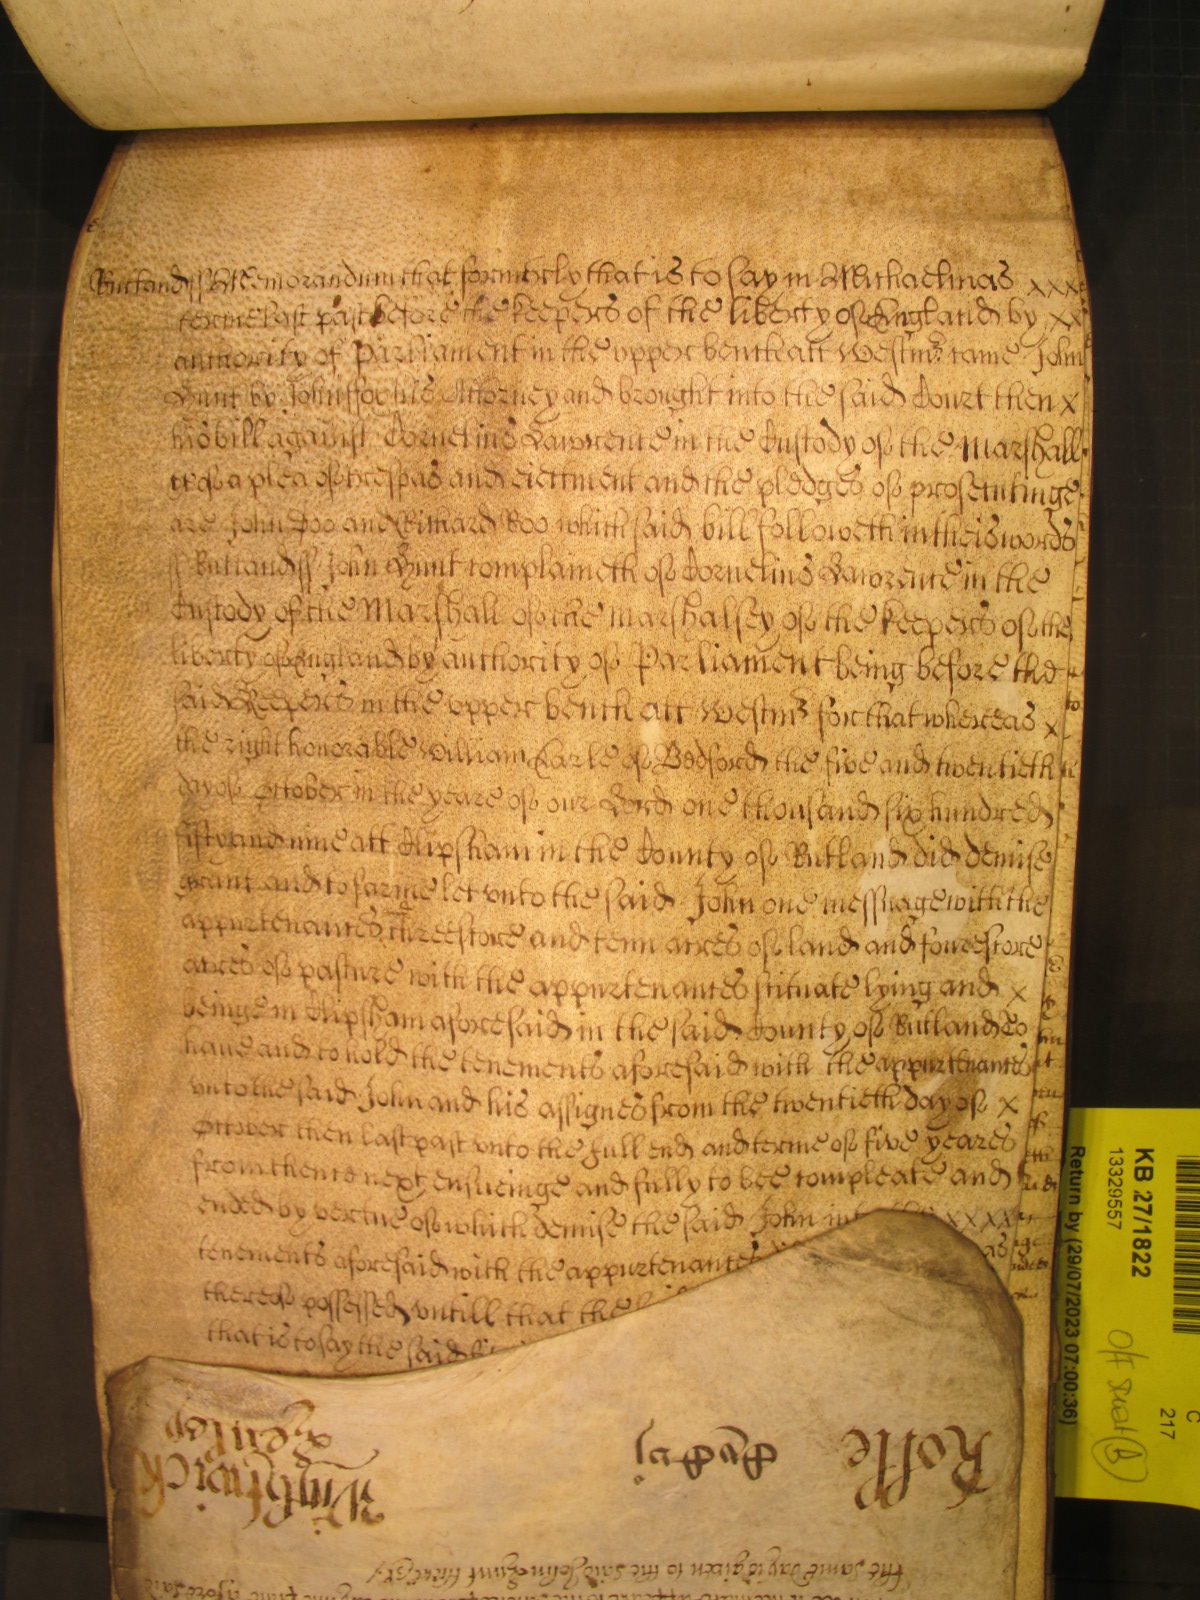 Rutland ss Memorandum that formerly that is to say in Michaelmas xxx
terme last past before the keepers of the liberty of England by xx
authority of Parliament in the upper bench att Westmr came John
Hunt by John ffox his Attorney and brought into the said Court then x
his bill against Cornelius Lawrence in the Custody of the Marshall
&c of a plea of trespas and eiectment and the pledges of prosecutinge
are John Doo and Richard Roo which said bill followeth in theis words
ss Rutland ss John Hunt complaineth of Cornelius Lawrence in the
Custody of the Marshall of the marshalsey of the keepers of the
liberty of England by authority of Parliament being before the
said Keepers in the upper bench att Westmr for that whereas x
the right honorable William Earle of Bedford the five and twentieth
day of October in the yeare of our Lord one thousand six hundred
fifty and nine att Clipsham in the County of Rutland did demise
graunt and to farme let unto the said John one messuage with the
appurtenances threescore and tenn acres of land and fourescore
acres of pasture with the appurtenances scituate lying and x
beinge in Clipsham aforesaid in the said County of Rutland To
have and to hold the tenements aforesaid with the appurtenances
unto the said John and his assignes from the twentieth day of x
October then last past unto the full end and terme of five yeares
from thence next ensueinge and fully to bee compleate and
ended by vertue of which demise the said John into the xxxx
tenements aforesaid with the appurtenances
thereof possessed untill that the
that is to say the said
Rolle
the same day is given to the said John Hunt there &c
KB 27/1822
13329557
Return by (29/07/2023 07:00:36)
C
217